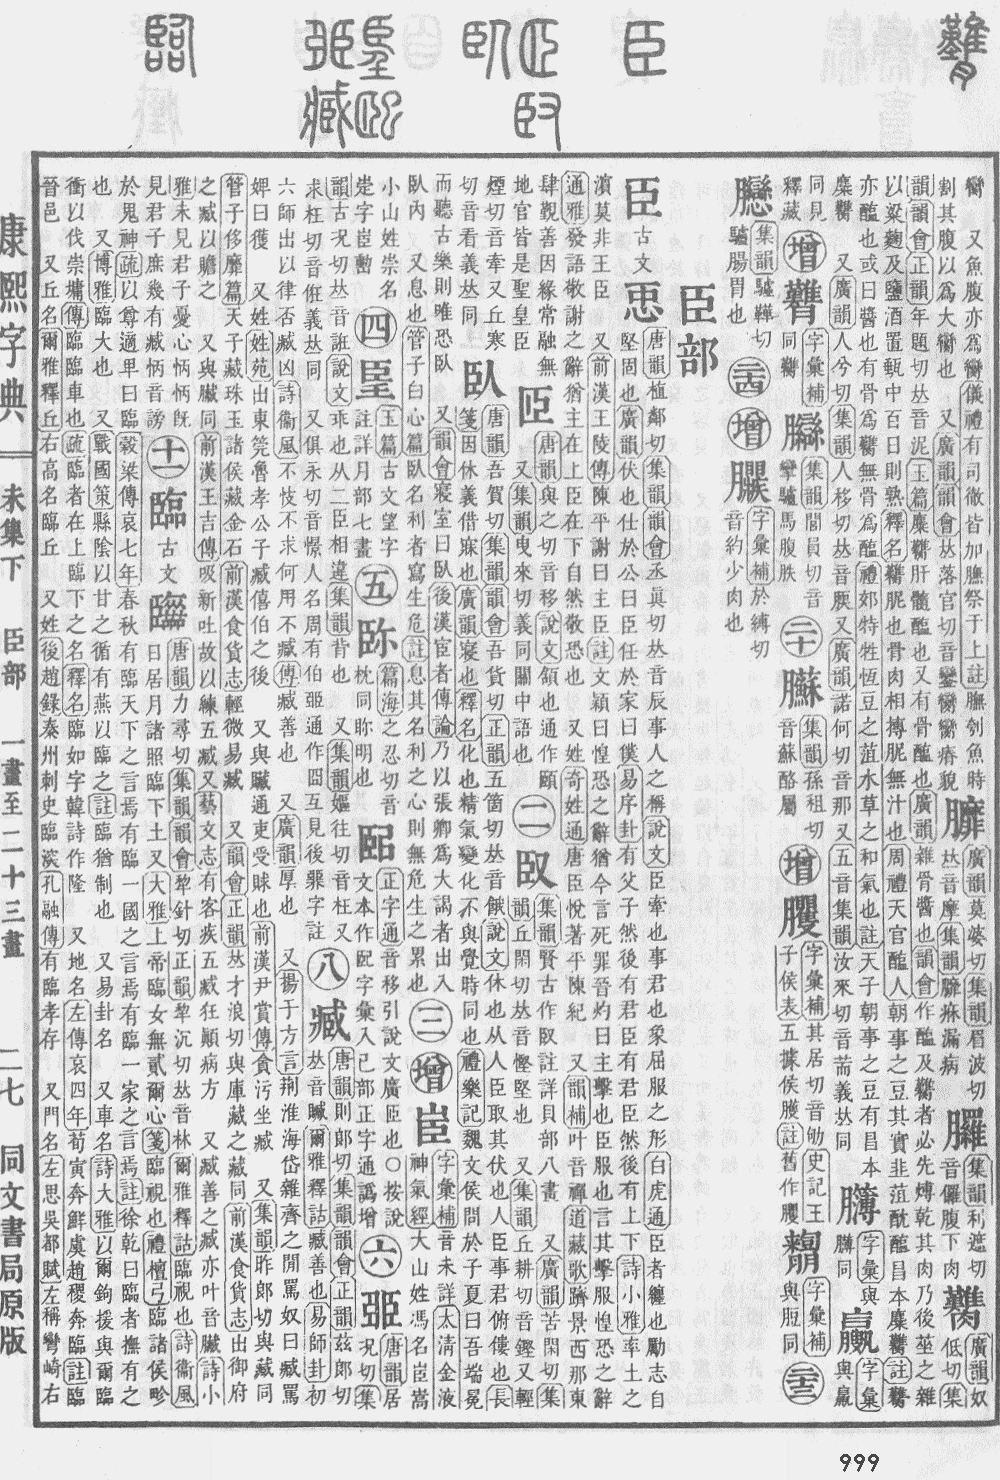 臠 又魚腹亦爲臠儀禮有司徹皆加膴祭于上註膴刳魚時
割其腹以爲大臠也 又廣韻韻會𠀤落官切音鑾臠臠瘠貌
廣韻莫婆切集韻眉波切
𠀤音摩集韻
漏病
集韻利遮切
音儸腹下肉
廣韻奴
低切集
韻韻會正韻年題切𠀤音泥玉篇麋臡肝髓醢也又有骨醢也廣韻雜骨醬也韻會作醢及臡者必先膊乾其肉乃後莝之雜
以粱麴及鹽酒置甀中百日則熟釋名臡胒也骨肉相搏胒無汁也周禮天官醢人朝事之豆其實韭菹醓醢昌本麋臡註臡
亦醢也或曰醬也有骨爲臡無骨爲醢禮郊特牲恆豆之菹水草之和氣也註天子朝事之豆有昌本
麋臡 又廣韻人兮切集韻人移切𠀤音腝又廣韻諾何切音那又五音集韻汝來切音荋義𠀤同
字彙與
膊同
字彙
與羸
同見
釋藏
增
字彙補
同臡
集韻閭員切音
攣驢馬腹胅
二十
集韻孫祖切
音蘇酪屬
增
字彙補其居切音劬史記王
子侯表五據侯臞註舊作臞
字彙補
與胭同
二三
集韻驢鞾切
驢腸胃也
二四
增
字彙補於縛切
音約少肉也
臣部
臣
古文
唐韻植鄰切集韻韻會丞眞切𠀤音辰事人之稱說文臣牽也事君也象屈服之形白虎通臣者纏也勵志自
堅固也廣韻伏也仕於公曰臣任於家曰僕易序卦有父子然後有君臣有君臣然後有上下詩小雅率土之
濱莫非王臣 又前漢王陵傳陳平謝曰主臣註文穎曰惶恐之辭猶今言死罪晉灼曰主擊也臣服也言其擊服惶恐之辭
通雅發語敬謝之辭猶主在上臣在下自然敬恐也 又姓奇姓通唐臣悅著平陳紀 又韻補叶音禪道藏歌躋景西那東
肆覲善因緣常融無
地官皆是聖皇臣
𦣝
唐韻與之切音移說文頷也通作頤
又集韻曳來切義同關中語也
二
臤
集韻賢古作臤註詳貝部八畫 又廣韻苦閑切集
韻丘閑切𠀤音慳堅也 又集韻丘耕切音鏗又輕
煙切音牽又丘寒
切音看義𠀤同
臥
唐韻吾貨切集韻韻會吾貨切正韻五箇切𠀤音餓說文休也从人臣取其伏也人臣事君俯僂也長
箋因休義借寐也廣韻寢也釋名化也精氣變化不與覺時同也禮樂記魏文侯問於子夏曰吾端冕
而聽古樂則唯恐臥 又息也管子白心篇臥名利者寫生危註息其名利之心則無危生之累也
臥內 又韻會寢室曰臥後漢宦者傳論乃以張卿爲大謁者出入
三
增
𦣞
字彙補音未詳太淸金液
神氣經大山姓馮名𦣞嵩
小山姓崇名
壵字𦣞勳
四
𦣠
玉篇古文望字
註詳月部七畫
五
篇海之忍切音
枕同眕明也
𦣡
正字通音移引說文廣𦣝也〇按說
文本作𦣡字彙入己部正字通譌增
六
唐韻居
況切集
韻古況切𠀤音誑說文乖也从二臣相違集韻背也 又集韻嫗往切音枉又
求枉切音俇義𠀤同 又俱永切音憬人名周有伯臦通作冏互見後臩字註
八
臧
唐韻則郎切集韻韻會正韻茲郎切
𠀤音贓爾雅釋詁臧善也易師卦初
六師出以律否臧凶詩衞風不忮不求何用不臧傳臧善也 又廣韻厚也 又揚子方言荆淮海岱雜齊之閒罵奴曰臧罵
婢曰獲 又姓姓苑出東莞魯孝公子臧僖伯之後 又與贓通吏受賕也前漢尹賞傳貪污坐臧 又集韻昨郎切與藏同
管子侈靡篇天子藏珠玉諸侯藏金石前漢食貨志輕微易臧 又韻會正韻𠀤才浪切與庫藏之藏同前漢食貨志出御府
之臧以贍之 又與臟同前漢王吉傳吸新吐故以練五臧又藝文志有客疾五臧狂顚病方 又臧善之臧亦叶音臟詩小
雅未見君子憂心怲怲旣
見君子庶幾有臧怲音謗
十一
臨
古文
唐韻力尋切集韻韻會犂針切正韻犂沉切𠀤音林爾雅釋詁臨視也詩衞風
日居月諸照臨下土又大雅上帝臨女無貳爾心箋臨視也禮檀弓臨諸侯畛
於鬼神疏以尊適卑曰臨穀梁傳哀七年春秋有臨天下之言焉有臨一國之言焉有臨一家之言焉註徐乾曰臨者撫有之
也 又博雅臨大也 又戰國策縣陰以甘之循有燕以臨之註臨猶制也 又易卦名 又車名詩大雅以爾鉤援與爾臨
衝以伐崇墉傳臨臨車也疏臨者在上臨下之名釋名臨如字韓詩作隆 又地名左傳哀四年荀寅奔鮮虞趙稷奔臨註臨
晉邑 又丘名爾雅釋丘右高名臨丘 又姓後趙錄秦州刺史臨淡孔融傳有臨孝存 又門名左思吳都賦左稱彎崎右
康熙字典 未集下 臣部 一畫至二十三畫 二七 同文書局原版
999